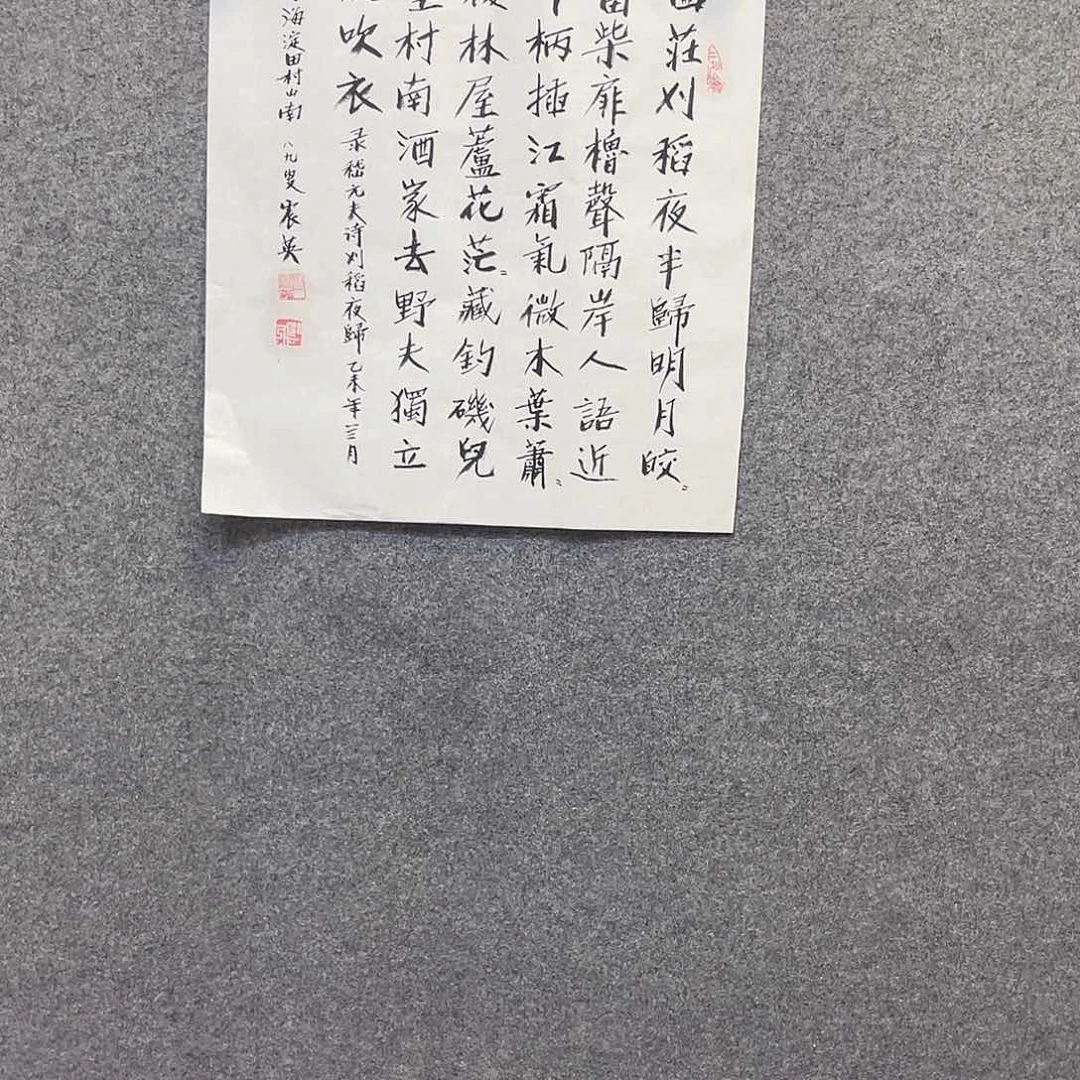 莊刈稻夜半歸明月皎〻
柴扉櫓聲隔岸人語近
柄插江霜氣微木葉蕭〻
林屋蘆花茫〻藏釣磯兒
村南酒家去野夫獨立
吹衣 录嵇元夫诗刈稻夜歸 乙未年三月
海淀田村山南 八九叟宸英